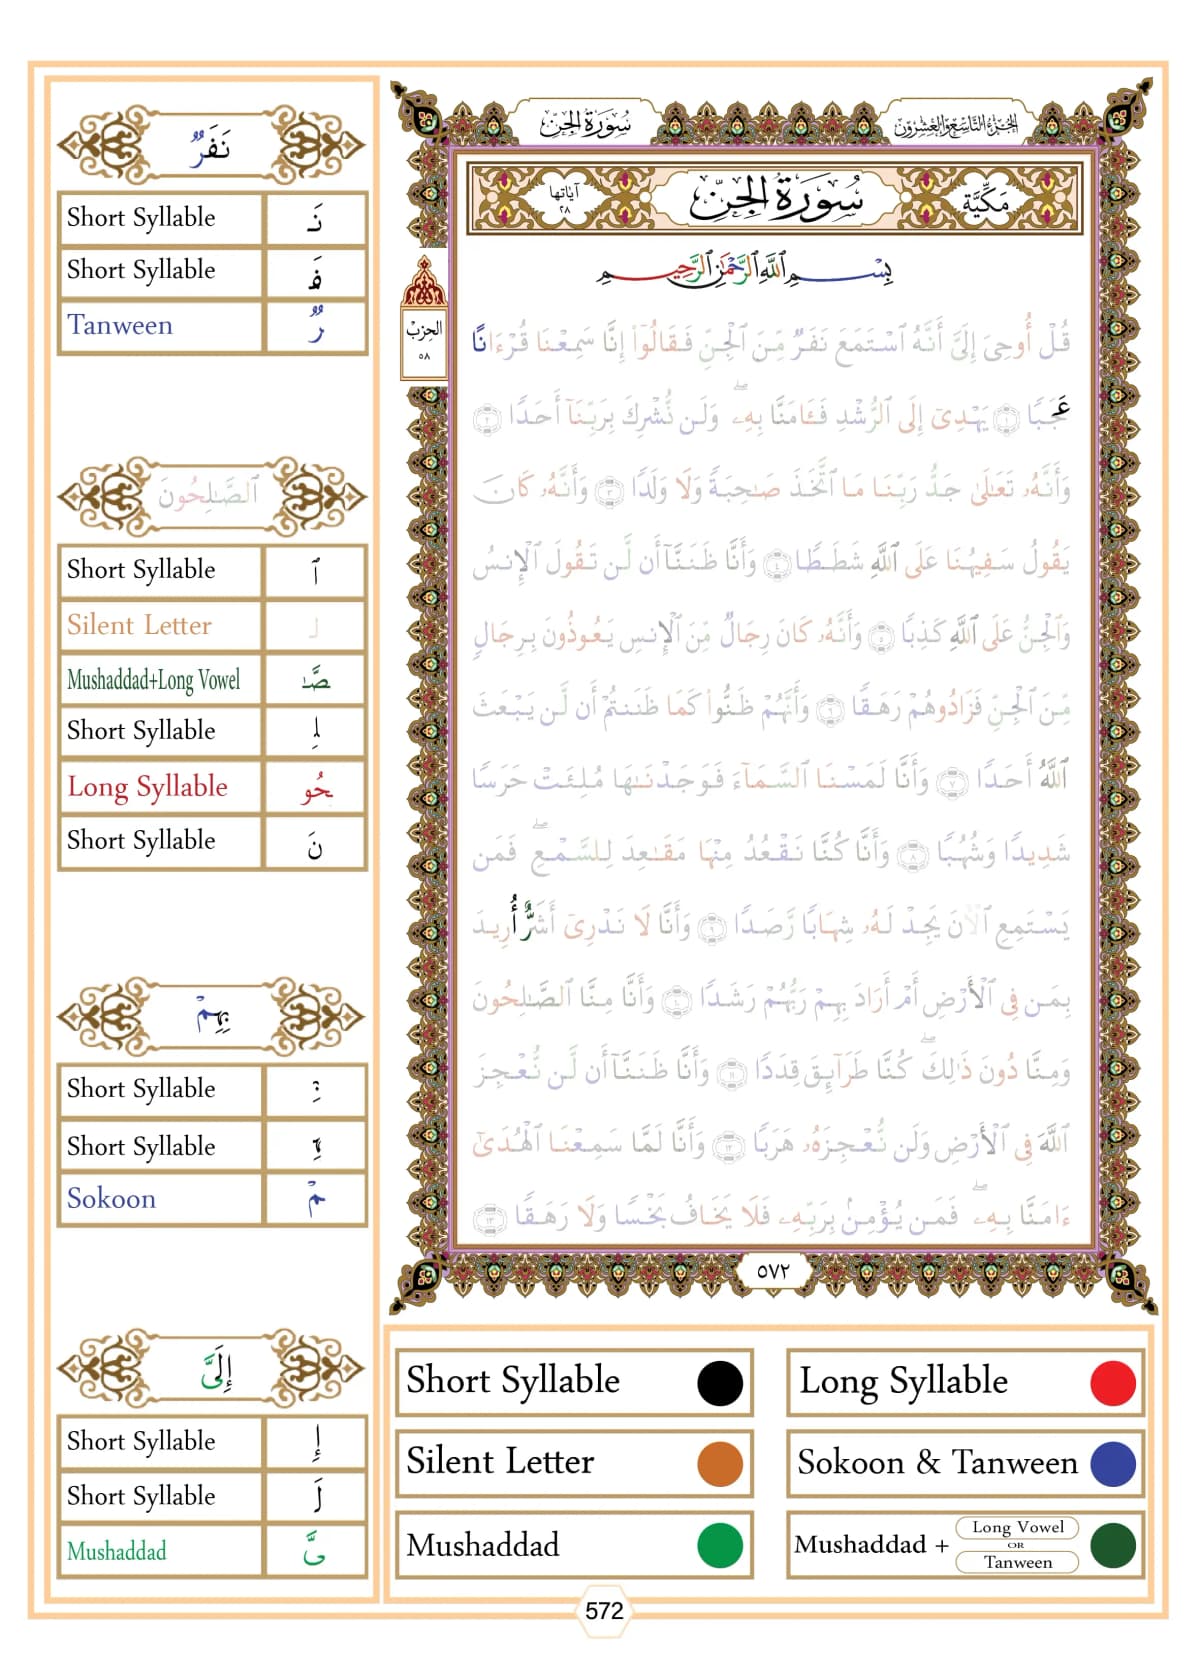 سُورَةُ الجِنّ
الجُزءُ التَّاسِعُ وَالعِشْرُون
مَكِّيَّة
سُورَةُ الجِنّ
آيَاتُهَا
٢٨
بِسْمِ ٱللَّهِ ٱلرَّحْمَٰنِ ٱلرَّحِيمِ
الحِزْبُ
٥٨
قُلْ أُوحِىَ إِلَىَّ أَنَّهُ ٱسْتَمَعَ نَفَرٌ مِّنَ ٱلْجِنِّ فَقَالُوٓا۟ إِنَّا سَمِعْنَا قُرْءَانًا
عَجَبًا ١ يَهْدِىٓ إِلَى ٱلرُّشْدِ فَـَٔامَنَّا بِهِۦ ۖ وَلَن نُّشْرِكَ بِرَبِّنَآ أَحَدًا ٢
وَأَنَّهُۥ تَعَٰلَىٰ جَدُّ رَبِّنَا مَا ٱتَّخَذَ صَٰحِبَةً وَلَا وَلَدًا ٣ وَأَنَّهُۥ كَانَ
يَقُولُ سَفِيهُنَا عَلَى ٱللَّهِ شَطَطًا ٤ وَأَنَّا ظَنَنَّآ أَن لَّن تَقُولَ ٱلْإِنسُ
وَٱلْجِنُّ عَلَى ٱللَّهِ كَذِبًا ٥ وَأَنَّهُۥ كَانَ رِجَالٌ مِّنَ ٱلْإِنسِ يَعُوذُونَ بِرِجَالٍ
مِّنَ ٱلْجِنِّ فَزَادُوهُمْ رَهَقًا ٦ وَأَنَّهُمْ ظَنُّوا۟ كَمَا ظَنَنتُمْ أَن لَّن يَبْعَثَ
ٱللَّهُ أَحَدًا ٧ وَأَنَّا لَمَسْنَا ٱلسَّمَآءَ فَوَجَدْنَٰهَا مُلِئَتْ حَرَسًا
شَدِيدًا وَشُهُبًا ٨ وَأَنَّا كُنَّا نَقْعُدُ مِنْهَا مَقَٰعِدَ لِلسَّمْعِ ۖ فَمَن
يَسْتَمِعِ ٱلْـَٔانَ يَجِدْ لَهُۥ شِهَابًا رَّصَدًا ٩ وَأَنَّا لَا نَدْرِىٓ أَشَرٌّ أُرِيدَ
بِمَن فِى ٱلْأَرْضِ أَمْ أَرَادَ بِهِمْ رَبُّهُمْ رَشَدًا ١٠ وَأَنَّا مِنَّا ٱلصَّٰلِحُونَ
وَمِنَّا دُونَ ذَٰلِكَ ۖ كُنَّا طَرَآئِقَ قِدَدًا ١١ وَأَنَّا ظَنَنَّآ أَن لَّن نُّعْجِزَ
ٱللَّهَ فِى ٱلْأَرْضِ وَلَن نُّعْجِزَهُۥ هَرَبًا ١٢ وَأَنَّا لَمَّا سَمِعْنَا ٱلْهُدَىٰٓ
ءَامَنَّا بِهِۦ ۖ فَمَن يُؤْمِنۢ بِرَبِّهِۦ فَلَا يَخَافُ بَخْسًا وَلَا رَهَقًا ١٣
٥٧٢
نَفَرٌ
Short Syllable نَـ
Short Syllable ـفَـ
Tanween ـرٌ
ٱلصَّٰلِحُونَ
Short Syllable ٱ
Silent Letter لـ
Mushaddad+Long Vowel صَّٰـ
Short Syllable ـلِـ
Long Syllable ـحُو
Short Syllable نَ
بِهِمْ
Short Syllable بِـ
Short Syllable ـهِـ
Sokoon ـمْ
إِلَىَّ
Short Syllable إِ
Short Syllable لَـ
Mushaddad ـىَّ
Short Syllable
Long Syllable
Silent Letter
Sokoon & Tanween
Mushaddad
Mushaddad + Long Vowel OR Tanween
572